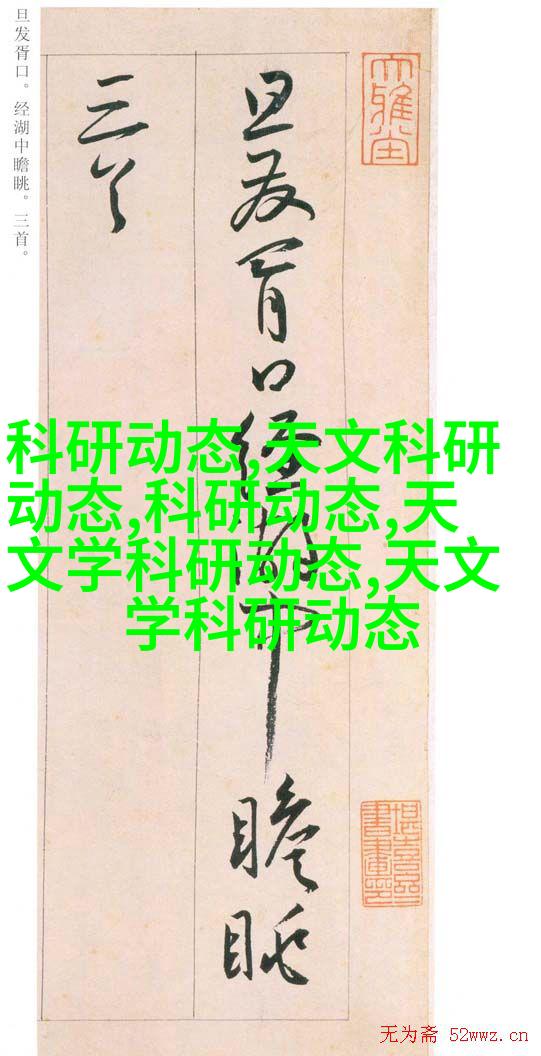 旦發胥口經湖中瞻眺
三首
旦发胥口。经湖中瞻眺。三首。
科研动态,天文科研
动态,科研动态,天
文学科研动态,天文
学科研动态
无为斋 52wwz.cn